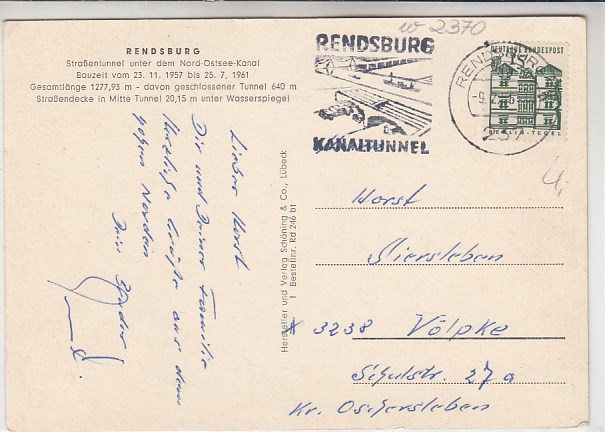 w 2370
RENDSBURG
Straßentunnel unter dem Nord-Ostsee-Kanal
Bauzeit vom 23. 11. 1957 bis 25. 7. 1961
Gesamtlänge 1277,93 m - davon geschlossener Tunnel 640 m
Straßendecke in Mitte Tunnel 20,15 m unter Wasserspiegel
Lieber Horst
Dir und Deiner Familie
Herzliche Grüße aus dem
hohen Norden
Dein
Hersteller und Verlag Schöning & Co., Lübeck
Bestellnr. Rd 246 b1
RENDSBURG
KANALTUNNEL
RENDSBURG
237
DEUTSCHE BUNDESPOST
15
BERLIN-TEGEL
4,-
Horst
Siersleben
X 3238 Völpke
Schulstr. 27a
Kr. Oschersleben